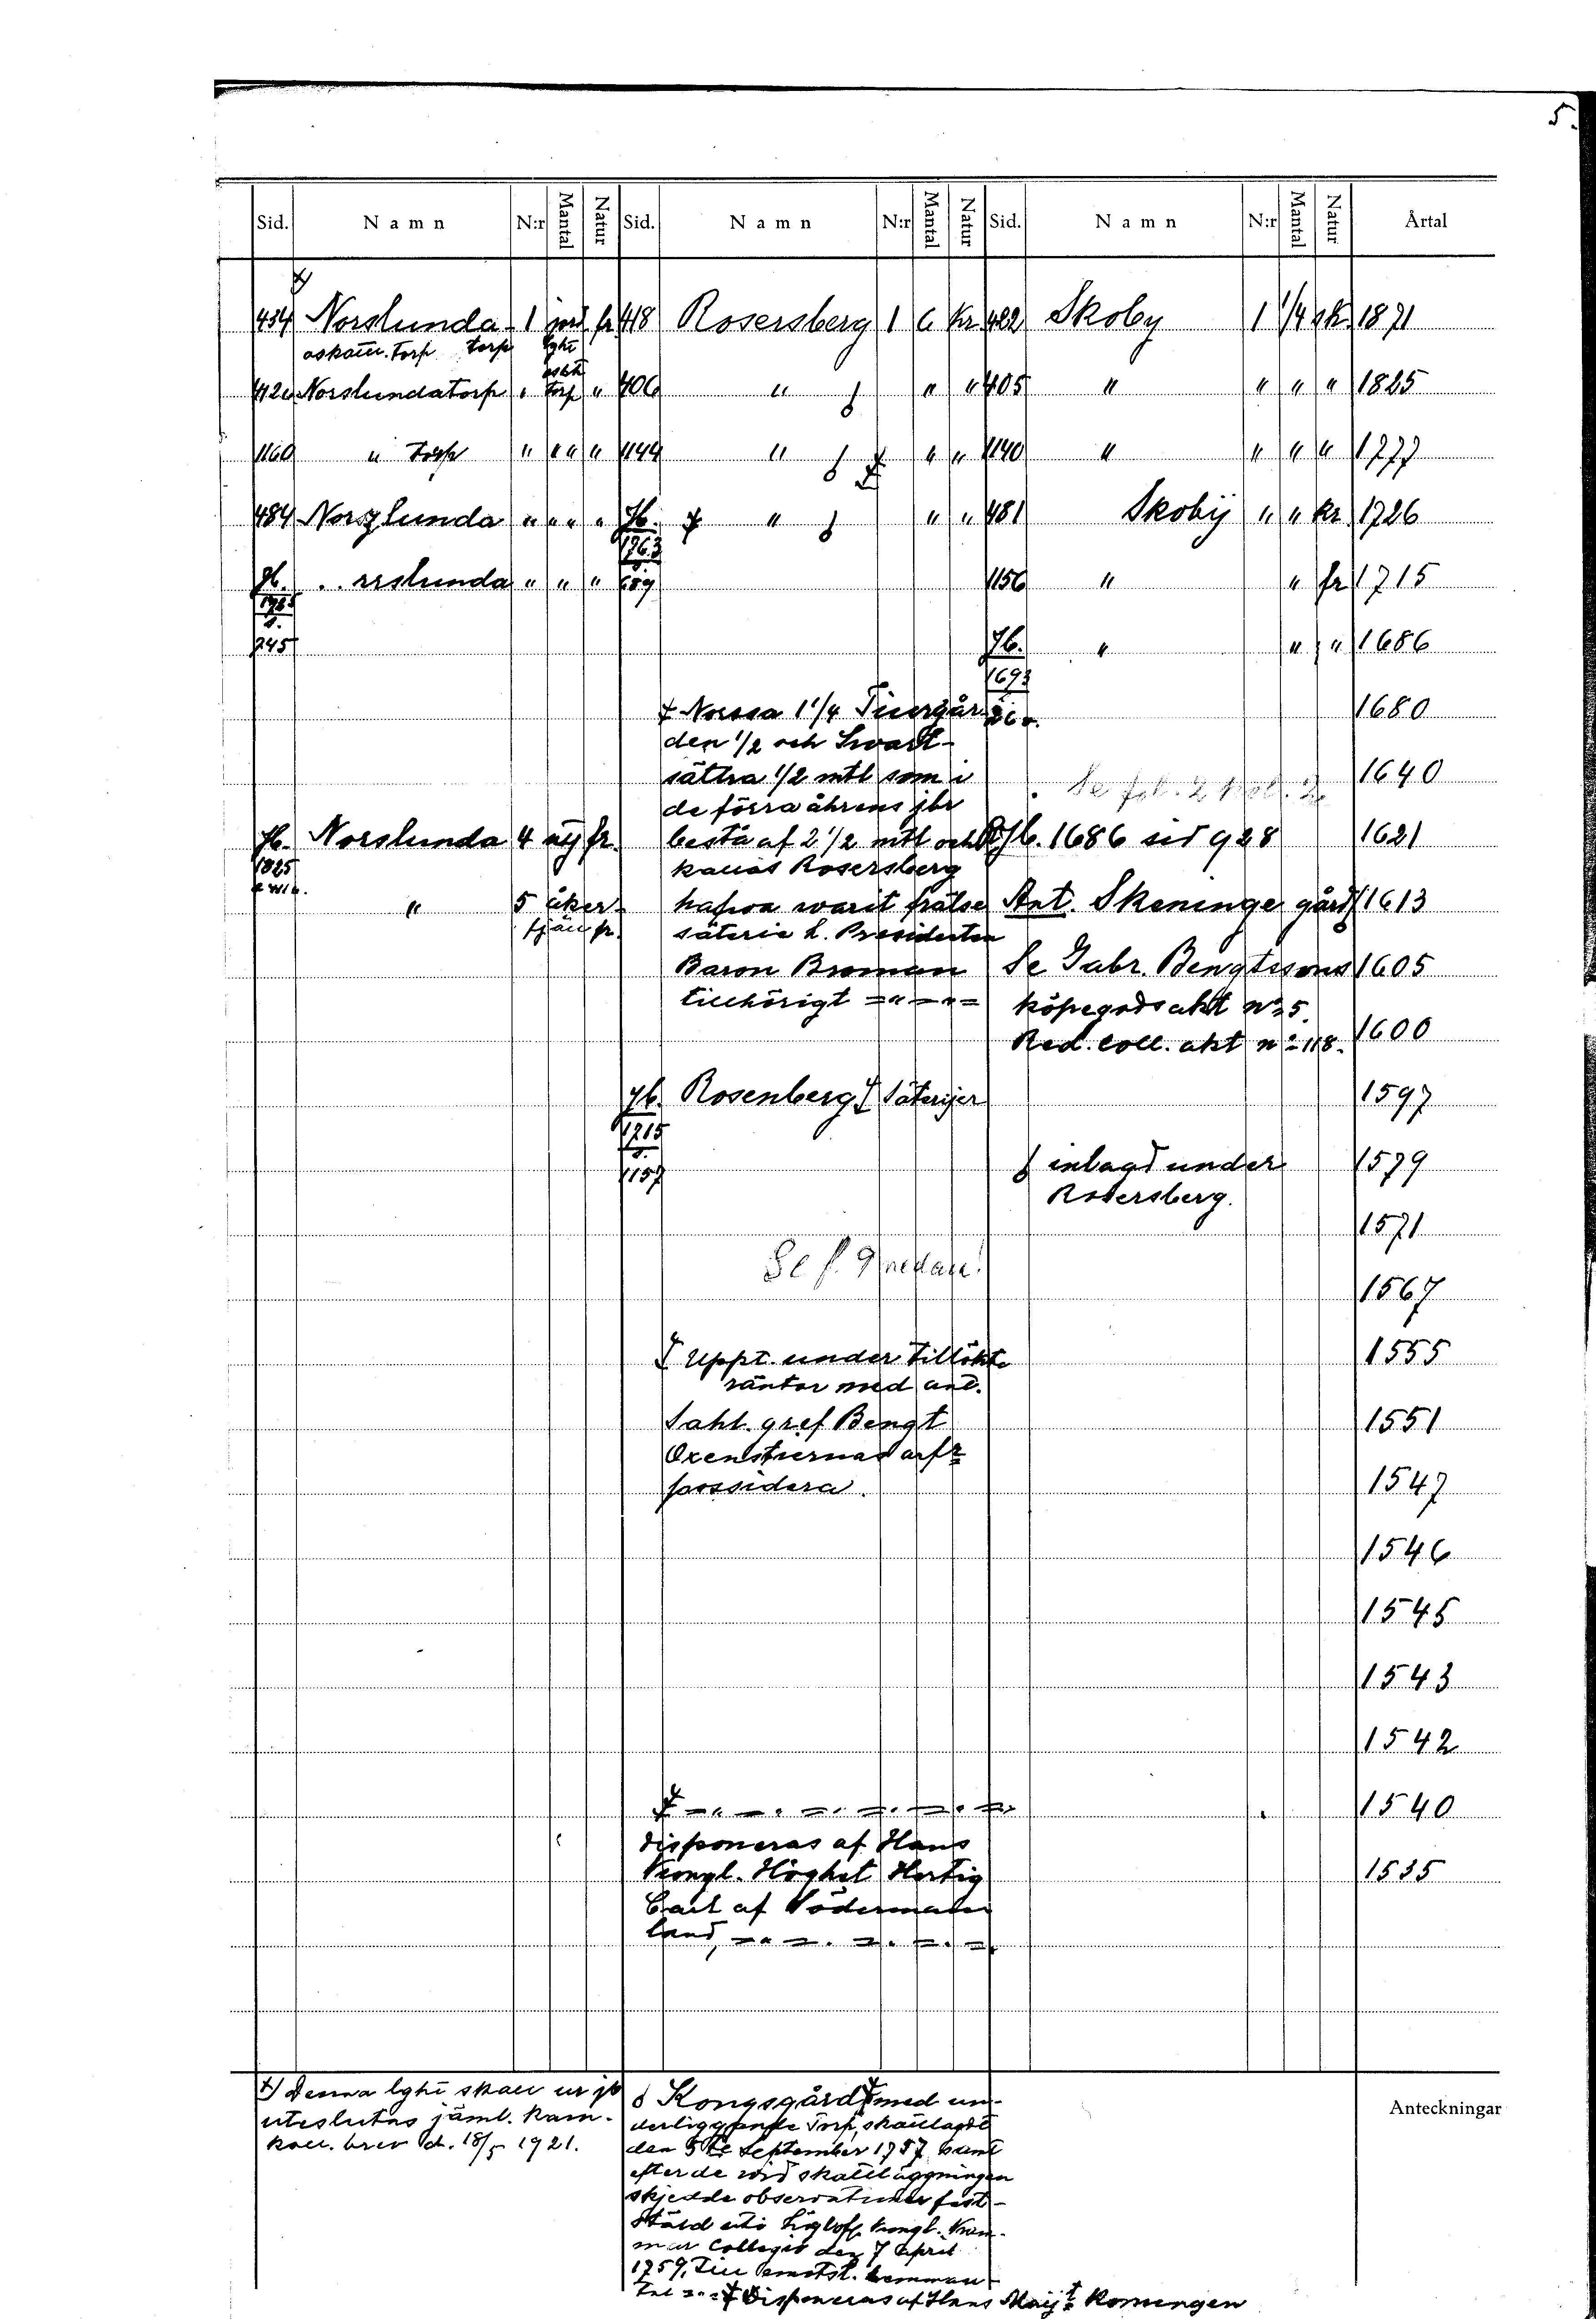 5.
Sid. Namn N:r Mantal Natur Sid. Namn N:r Mantal Natur Sid. Namn N:r Mantal Natur Årtal
434 Norslunda 1 jord fr 418 Rosersberg 1 6 kr 422 Skoby 1 1/4 sk. 1871
oskatt. torp torp lght
oskt
412 Norslundatorp " torp " 406 " " " 405 " " " " 1825
1160 " torp " " " " 1144 " " " 1140 " " " " 1777
484 Norzlunda " " " " Jb. " " " 481 Skobÿ " " kr. 1726
1763
Jb. ..rrslunda " " " 689 1156 " " fr 1715
1725
s.
245 Jb. " " " 1686
1693
Norssa 1 1/4 Diurgår- 1680
den 1/2 och Swart-
sättra 1/2 mtl som i 1640
de förra åhrens jbr
Jb. Norslunda 4 fr. bestå af 2 1/2 mtl och Jb. 1686 sid 928 1621
1825
kallas Rosersberg
" 5 åker hafwa warit frälse Ant. Skeninge gård 1613
tjän fr. säterie h. Presidenten
Baron Broman Se Gabr. Bengtssons 1605
tillhörigt = " = " = köpegodsakt No 5.
Red. Coll. akt no 118. 1600
Jb. Rosenberg Säterijer 1597
1715
1157 inlagd under 1579
Rosersberg.
1571
Se f. 9 nedan!
1567
Uppt. under tillökte 1555
räntor med ant.
Sahl. gref Bengt 1551
Oxenstiernas arfr
possidera. 1547
1546
1545
1543
1542
1540
disponeras af Hans
Kongl. Höghet Hertig 1535
Carl af Söderman
land,
x) Denna lght skall ur jb
uteslutas jäml. Kam.
koll. brev d. 18/5 1921.
Kongsgård med un-
derliggande Torp, skattlagde
den 5te September 1757 samt
efter de wid skattläggningen
skjedde observationer fast-
stäld uti Kongl. Kam-
mar Collegio den 7 April
1759, till hemman-
tal Disponeras af Hans Maijt Konungen
Anteckningar